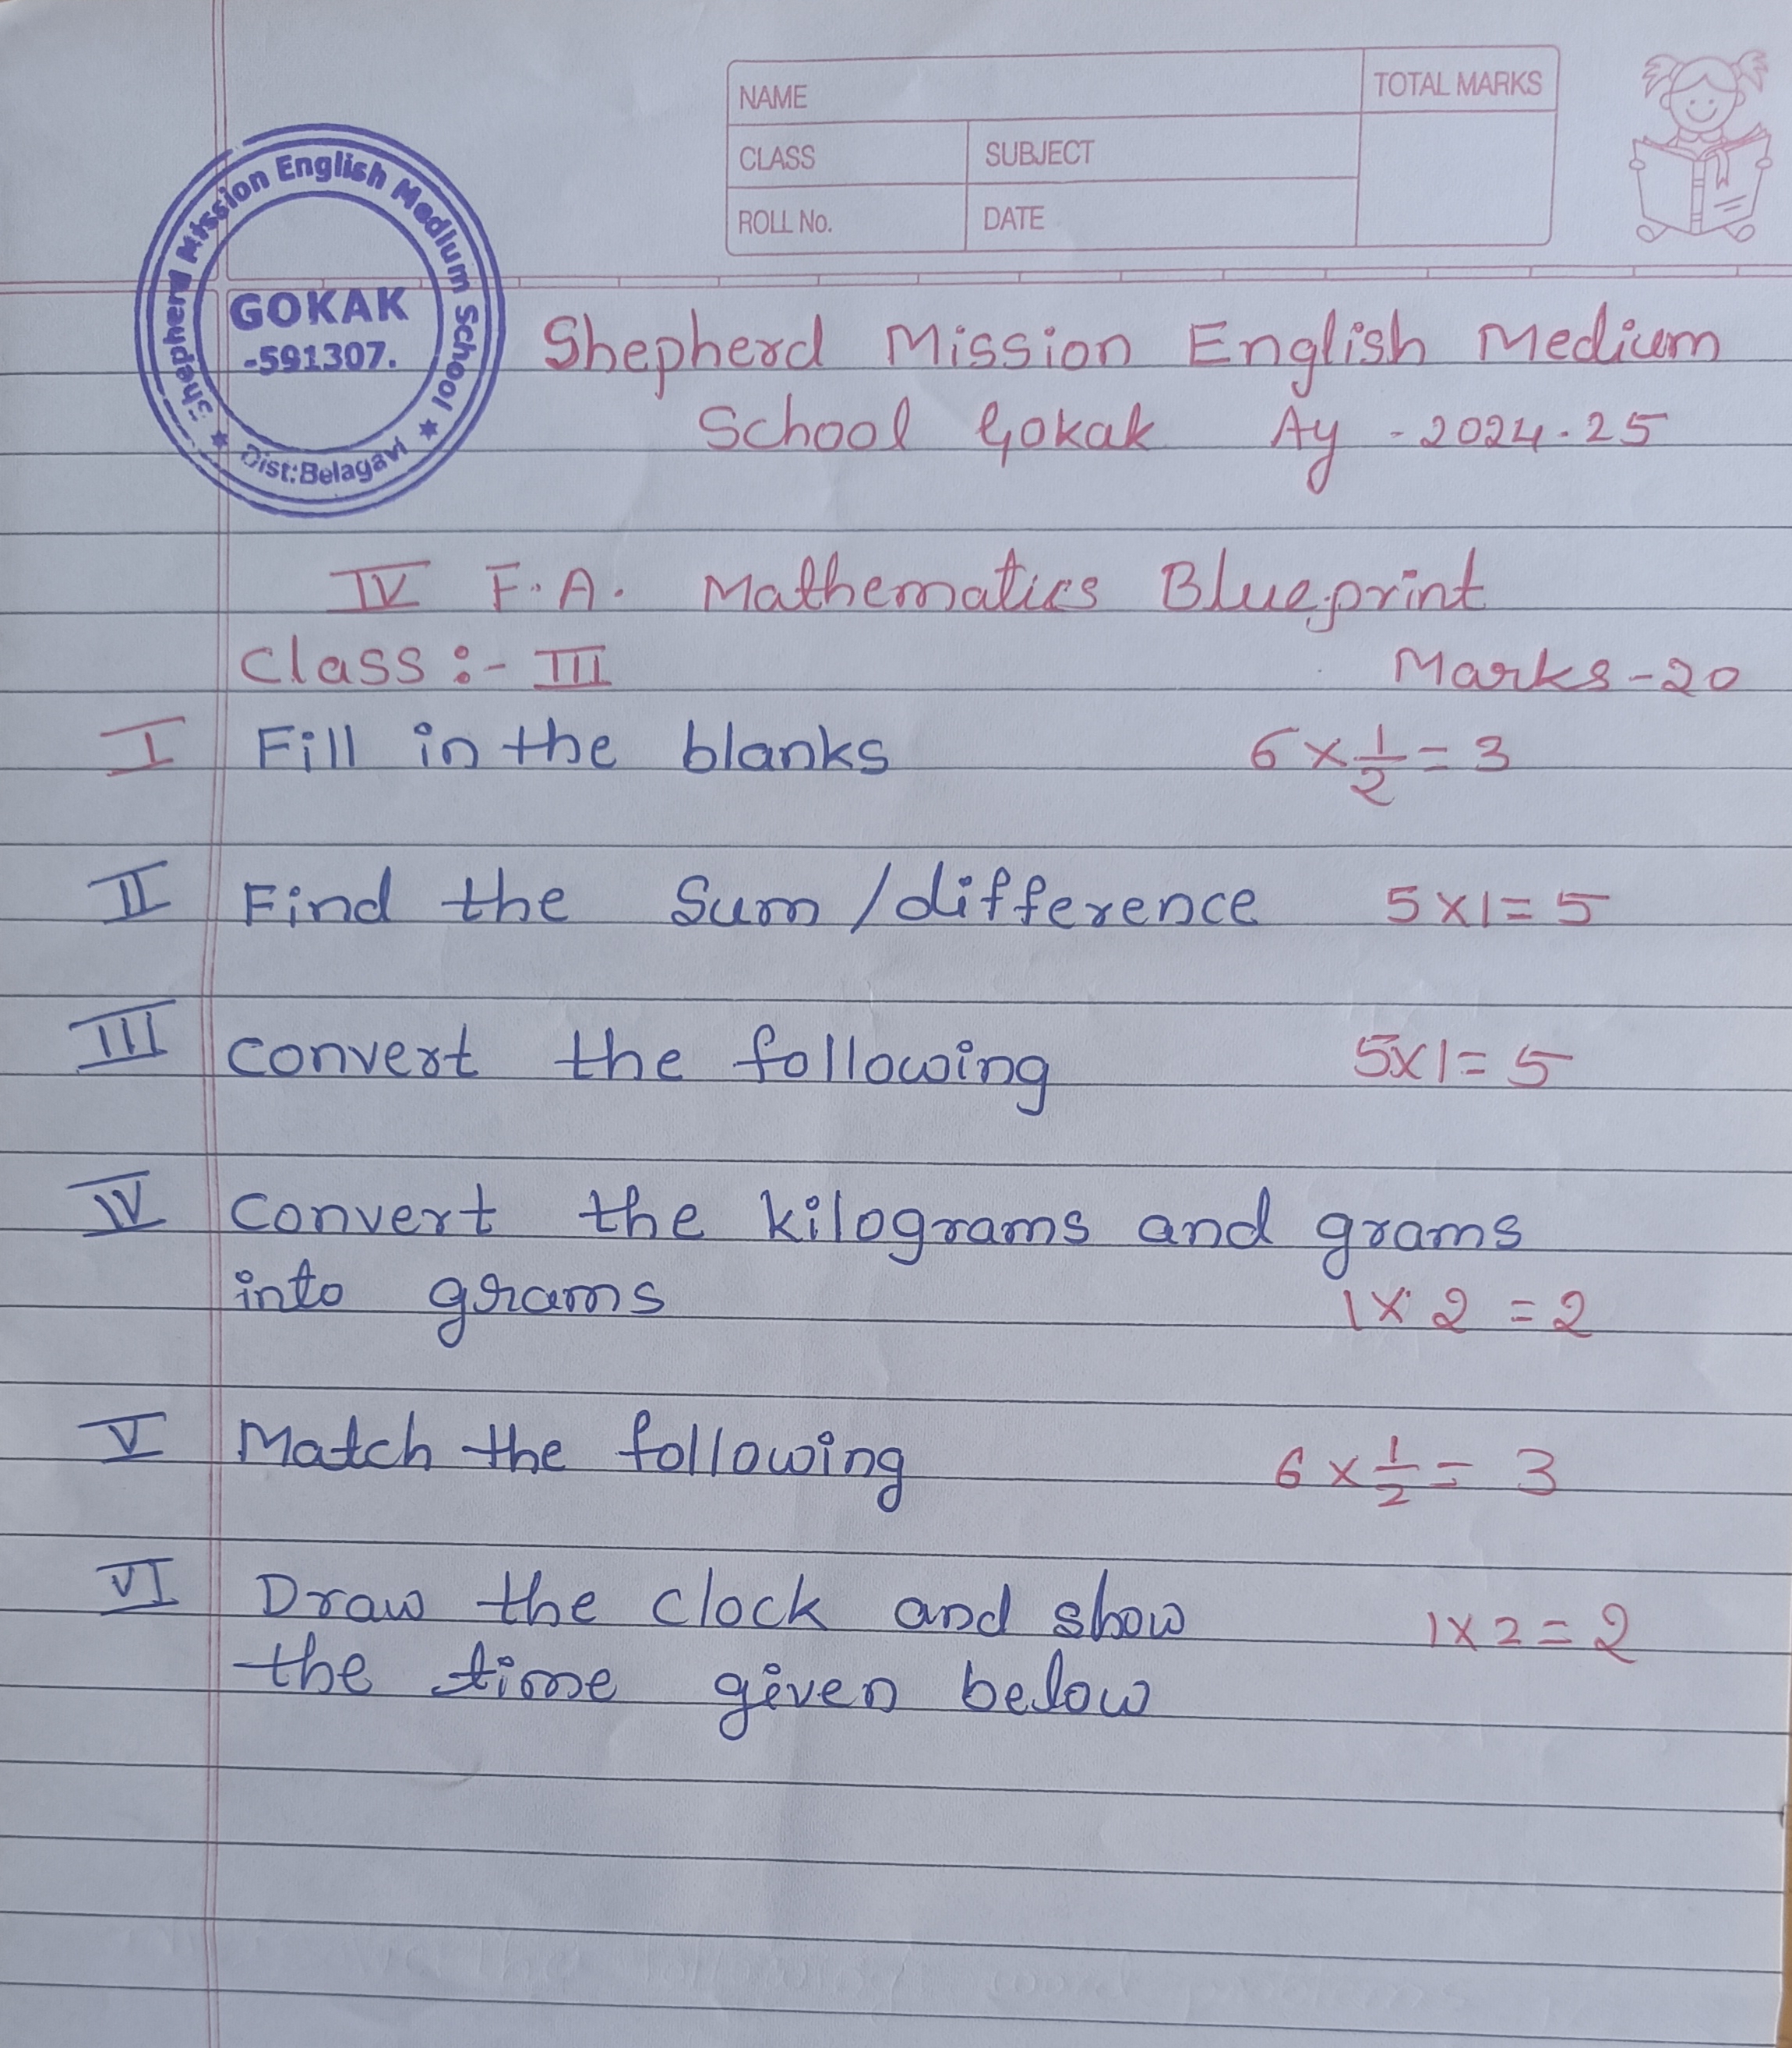 NAME
TOTAL MARKS
CLASS
SUBJECT
ROLL No.
DATE
Shepherd Mission English Medium School
GOKAK
-591307.
★ Dist:Belagavi ★
Shepherd Mission English Medium
School Gokak Ay - 2024-25
IV F.A. Mathematics Blueprint
Class :- III Marks-20
I Fill in the blanks 6 × 1/2 = 3
II Find the Sum / difference 5 × 1 = 5
III Convert the following 5×1= 5
IV Convert the kilograms and grams
into grams 1 × 2 = 2
V Match the following 6 × 1/2 = 3
VI Draw the clock and show 1 × 2 = 2
the time given below